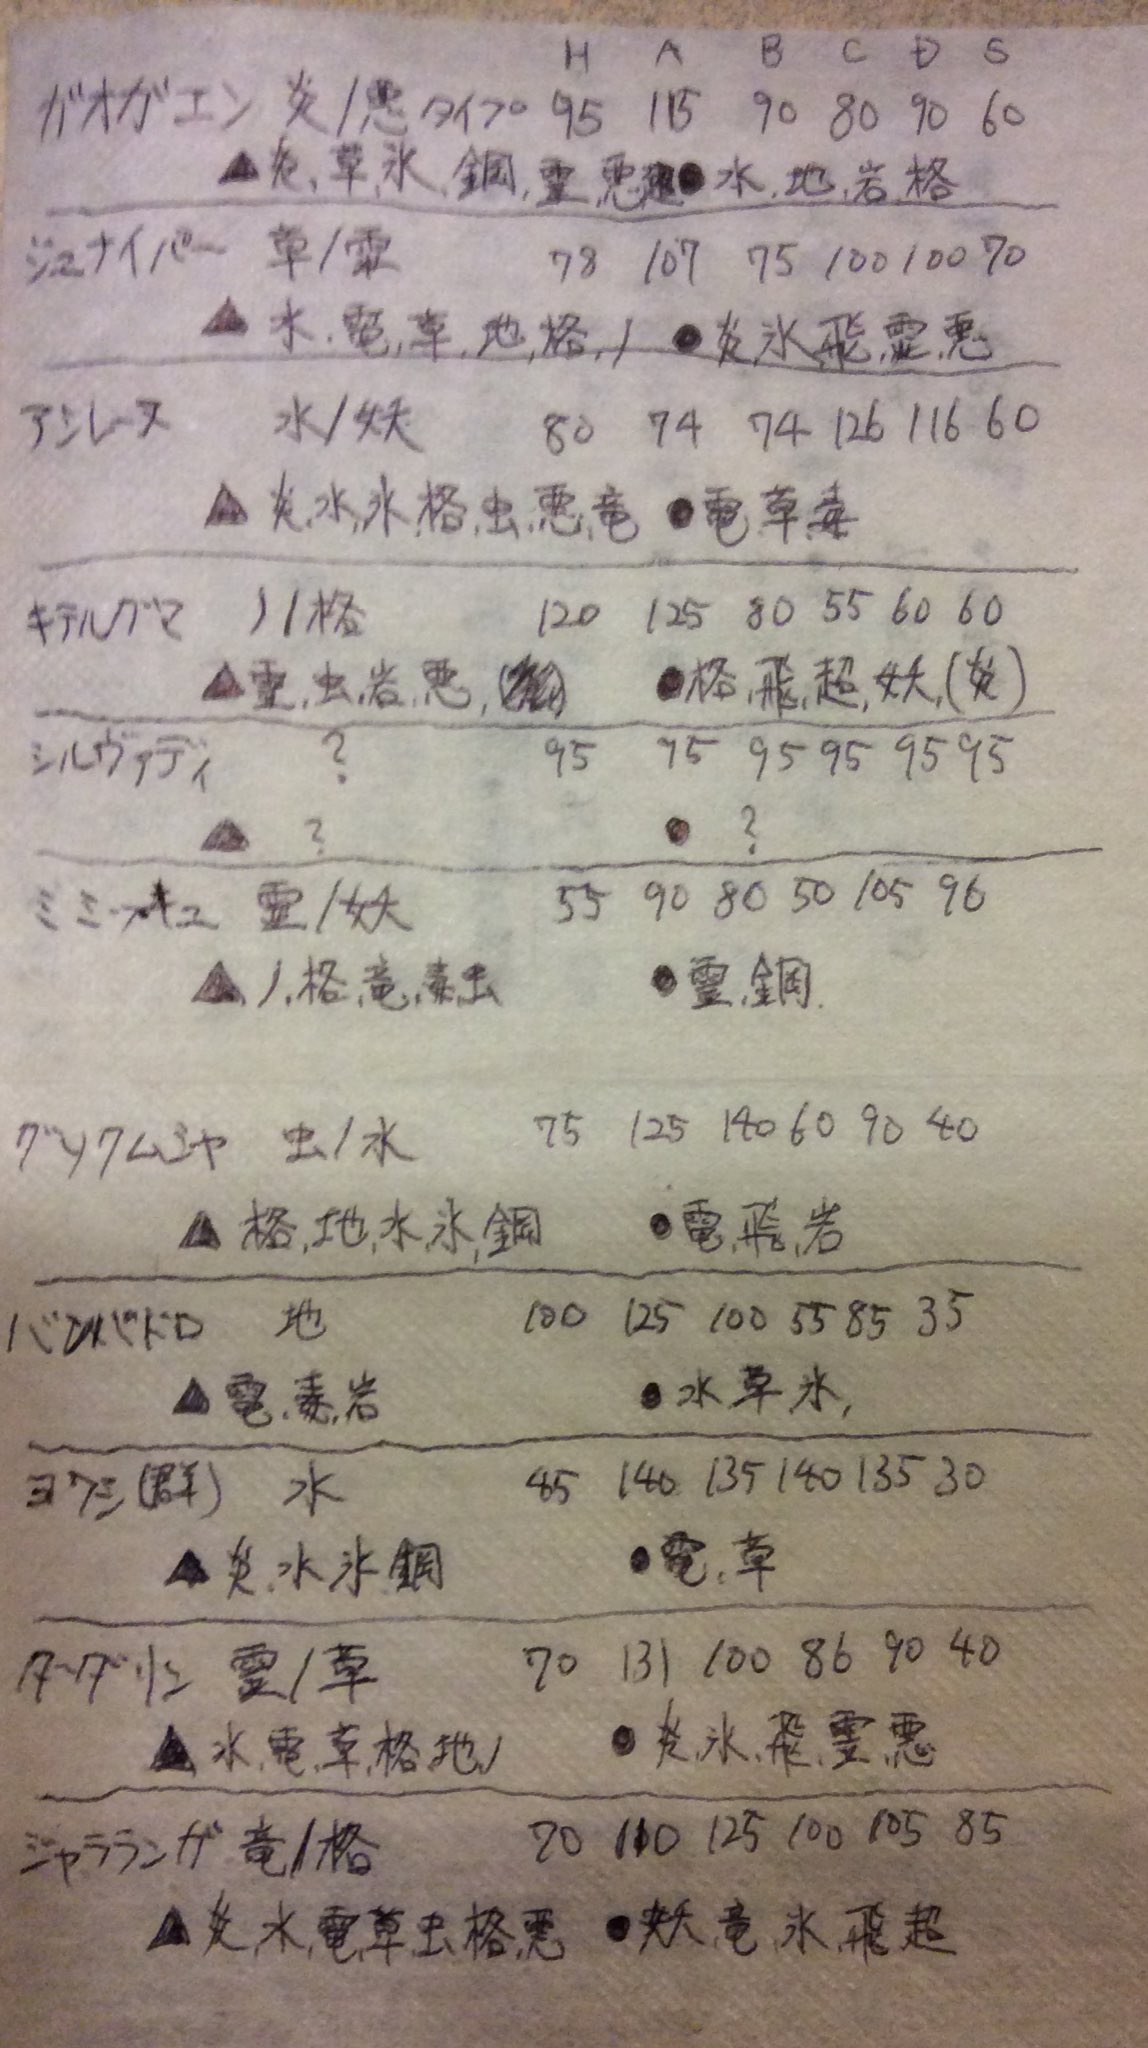 H A B C D S
ガオガエン 炎/悪タイプ 95 115 90 80 90 60
▲炎,草,氷,鋼,霊,悪,超●水,地,岩,格
ジュナイパー 草/霊 78 107 75 100 100 70
▲水,電,草,地,格,ノ ●炎,氷,飛,霊,悪
アシレーヌ 水/妖 80 74 74 126 116 60
▲炎,水,氷,格,虫,悪,竜 ●電,草,毒
キテルグマ ノ/格 120 125 80 55 60 60
▲霊,虫,岩,悪, ●格,飛,超,妖,(炎)
シルヴァディ ? 95 75 95 95 95 95
▲ ? ● ?
ミミッキュ 霊/妖 55 90 80 50 105 96
▲,ノ,格,竜,毒虫 ●霊,鋼.
グソクムシャ 虫/水 75 125 140 60 90 40
▲格,地,水,氷,鋼 ●電,飛,岩
バンバドロ 地 100 125 100 55 85 35
▲電,毒,岩 ●水草氷,
ヨワシ(群) 水 45 140 135 140 135 30
▲炎,水氷鋼 ●電,草
ダーダリン 霊/草 70 131 100 86 90 40
▲水,電,草,格,地,ノ ●炎,氷,飛,霊,悪
ジャラランガ 竜/格 70 110 125 100 105 85
▲炎,水,電,草,虫,格,悪 ●妖,竜,氷,飛超